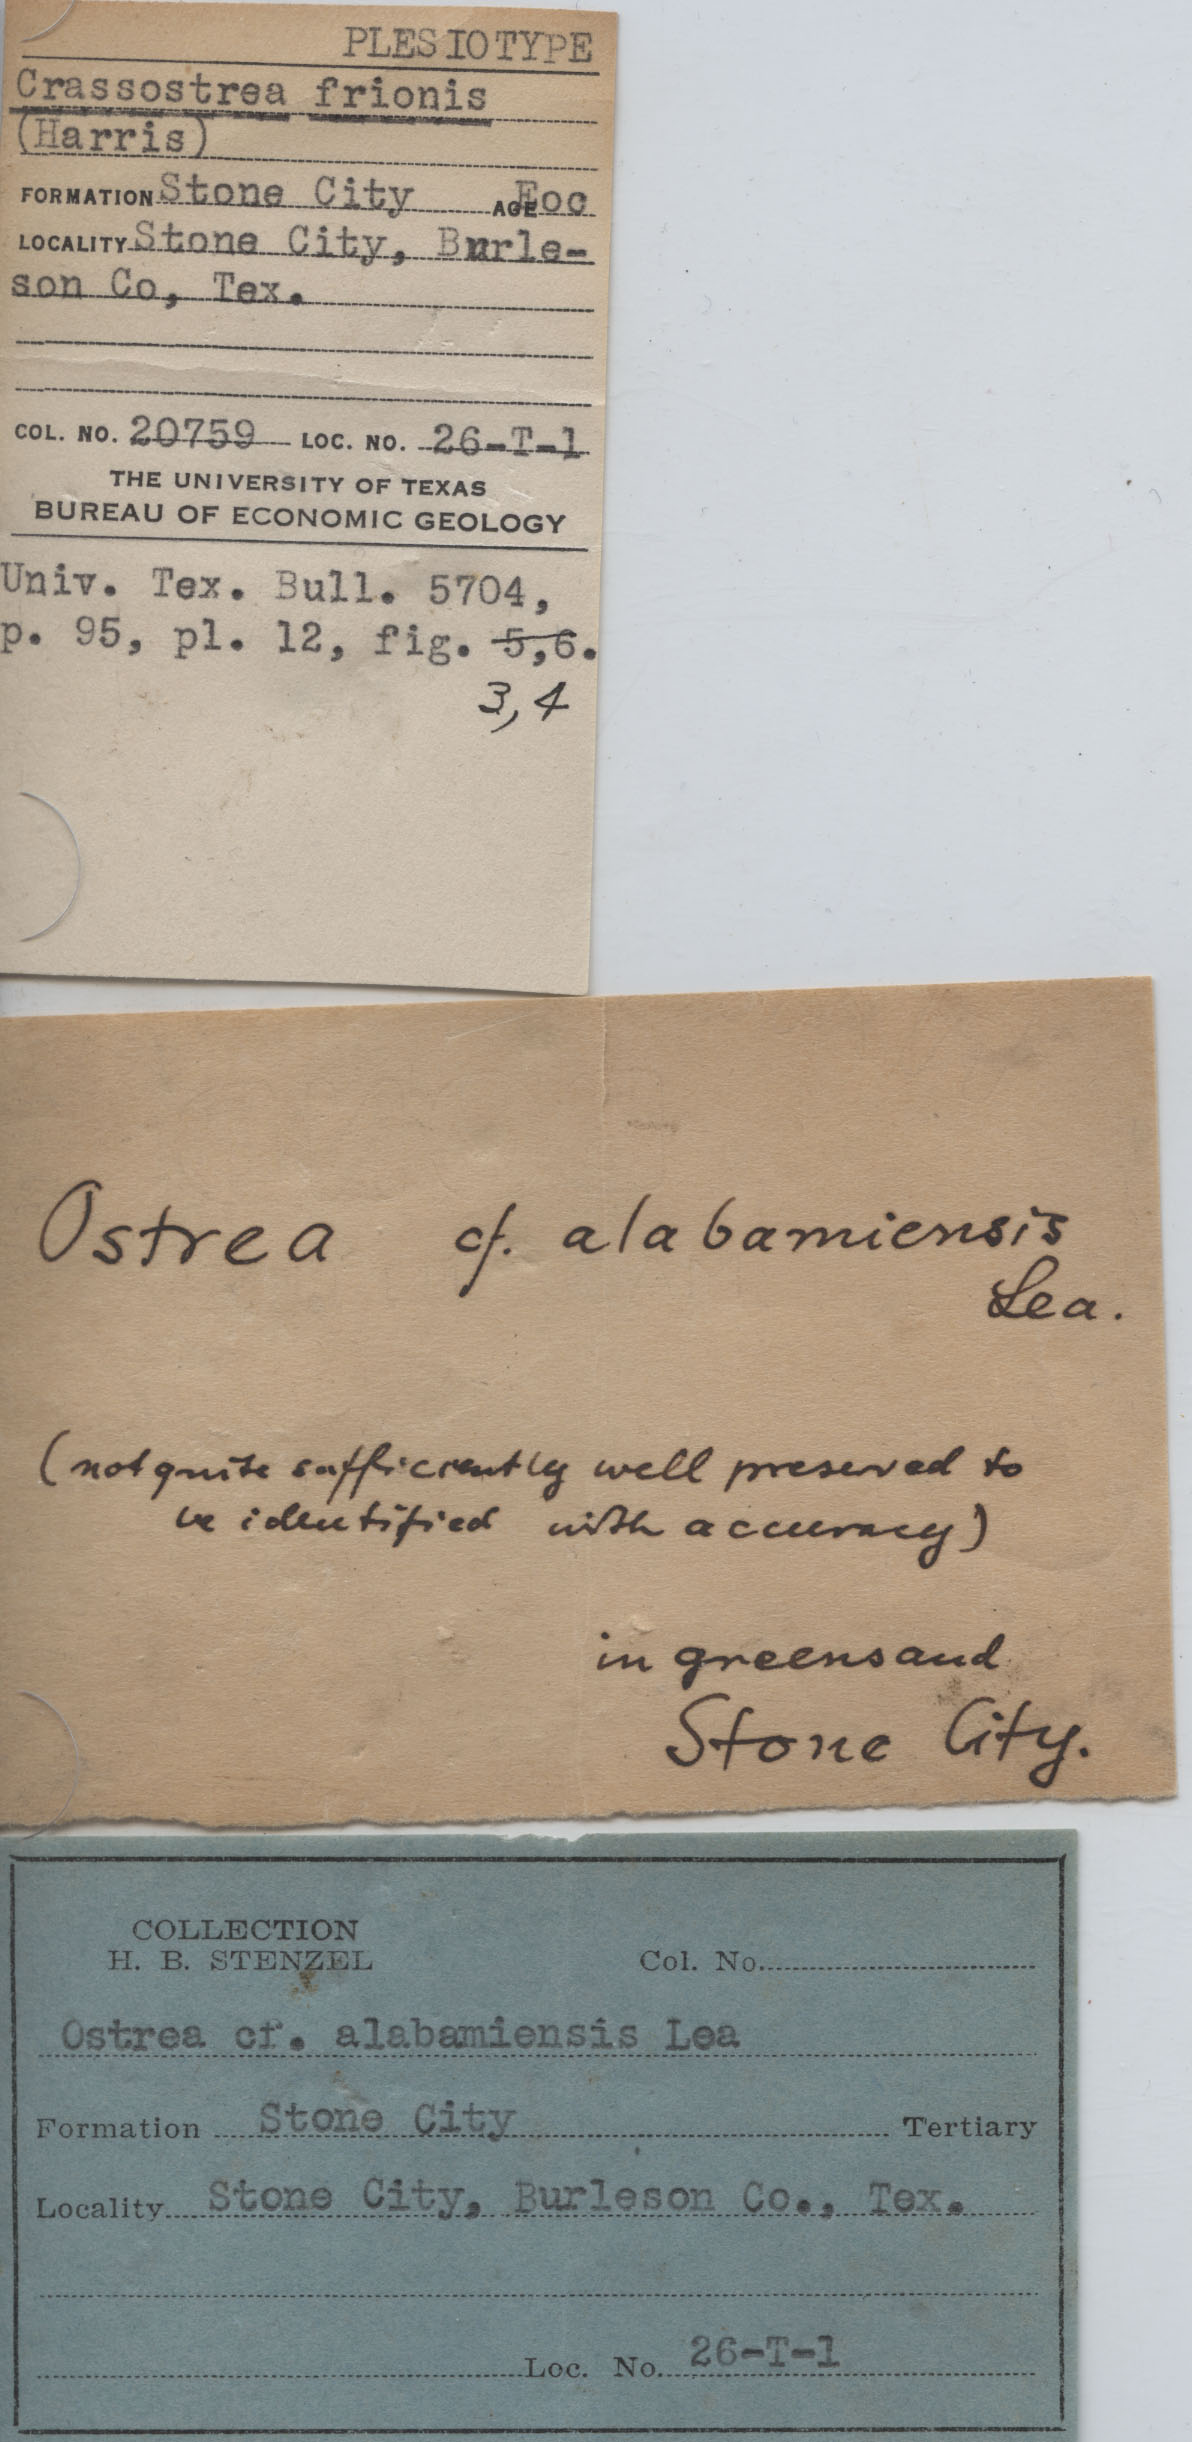 PLESIOTYPE
Crassostrea frionis
(Harris)
FORMATION Stone City AGE Eoc
LOCALITY Stone City, Burle-
son Co, Tex.
COL. NO. 20759 LOC. NO. 26-T-1
THE UNIVERSITY OF TEXAS
BUREAU OF ECONOMIC GEOLOGY
Univ. Tex. Bull. 5704,
p. 95, pl. 12, fig. 5,6.
3,4
Ostrea cf. alabamiensis
Lea.
(not quite sufficiently well preserved to
be identified with accuracy)
in greensand
Stone City.
COLLECTION
H. B. STENZEL Col. No.
Ostrea cf. alabamiensis Lea
Formation Stone City Tertiary
Locality Stone City, Burleson Co., Tex.
Loc. No. 26-T-1